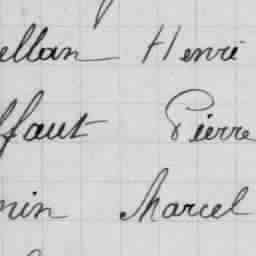 ellan Henri
ffaut Pierre
nin Marcel